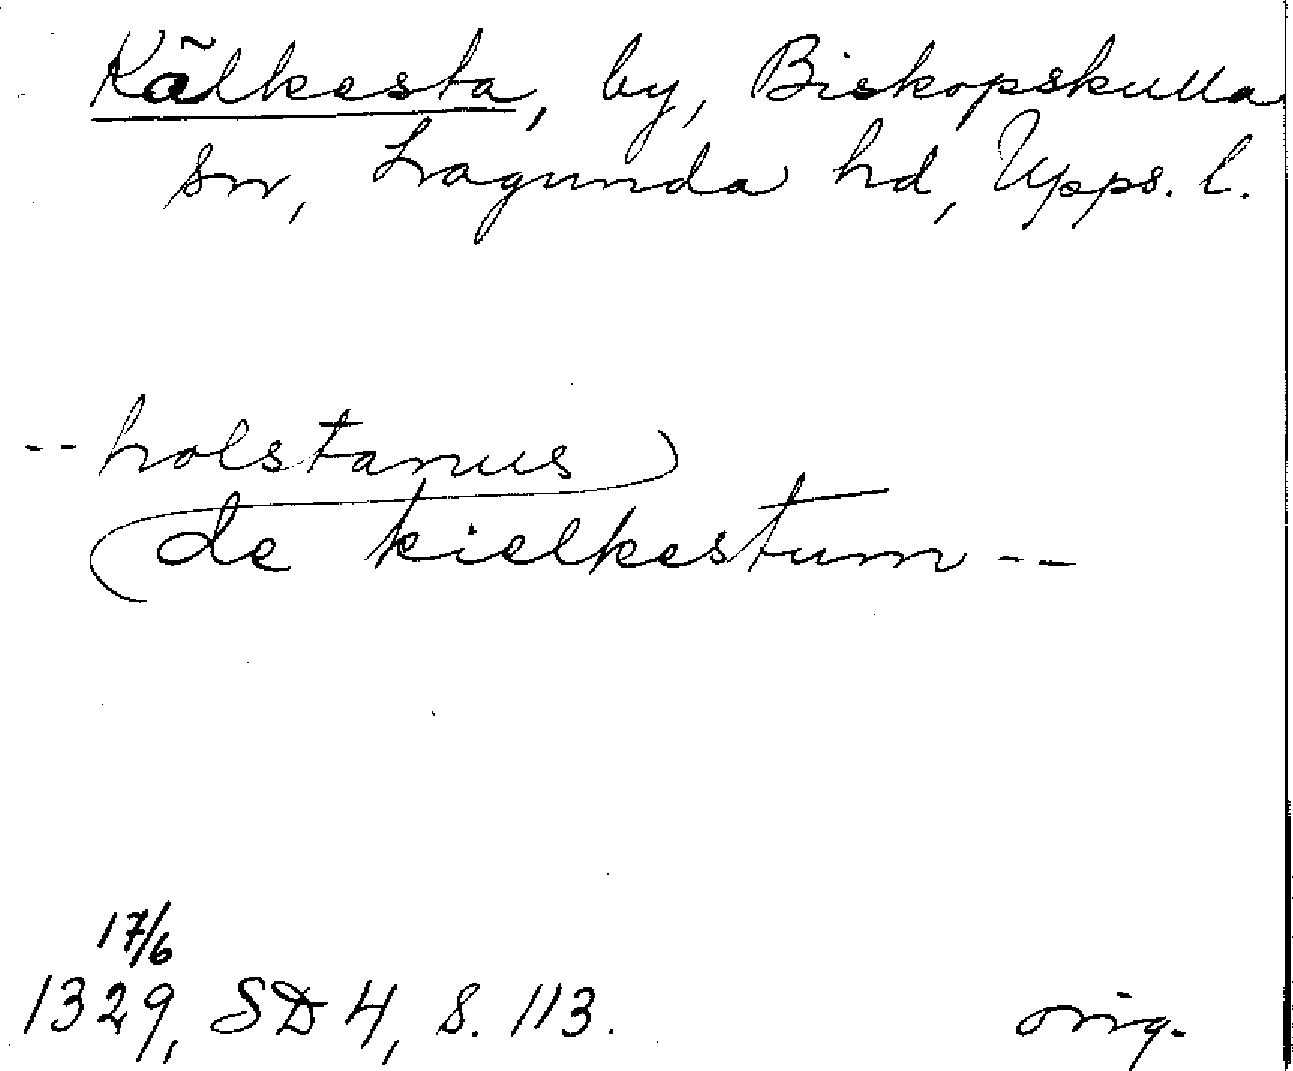 Kälkesta, by, Biskopskulla
sn, Lagunda hd, Upps. l.
-- holstanus
de kielkestum --
17/6
1329, SD 4, s. 113.
orig.